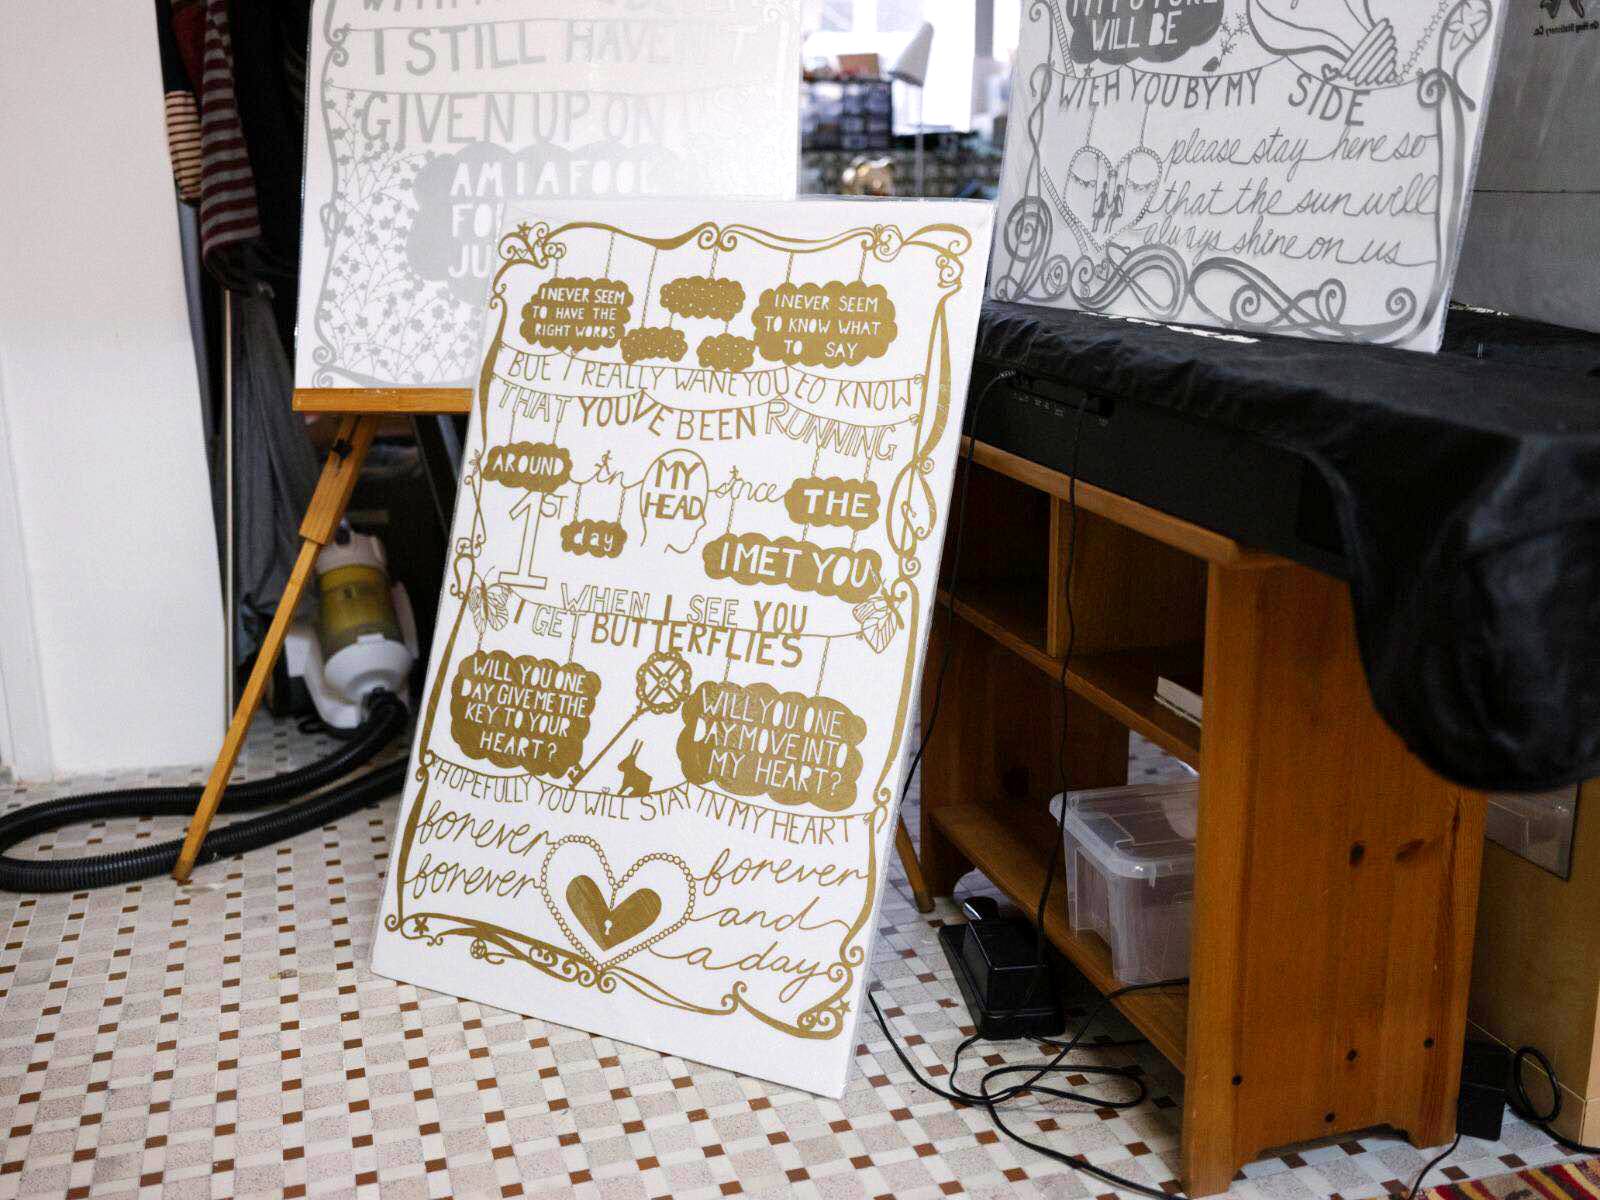 I STILL HAVE
GIVEN UP ON
AM I A FOOL
WILL BE
WITH YOU BY MY SIDE
please stay here so
that the sun will
always shine on us
I NEVER SEEM
TO HAVE THE
RIGHT WORDS
I NEVER SEEM
TO KNOW WHAT
TO SAY
BUT I REALLY WANT YOU TO KNOW
THAT YOU'VE BEEN RUNNING
AROUND in MY HEAD since THE
1ST day I MET YOU
WHEN I SEE YOU
I GET BUTTERFLIES
WILL YOU ONE
DAY GIVE ME THE
KEY TO YOUR
HEART?
WILL YOU ONE
DAY MOVE INTO
MY HEART?
HOPEFULLY YOU WILL STAY IN MY HEART
forever forever
forever and
a day